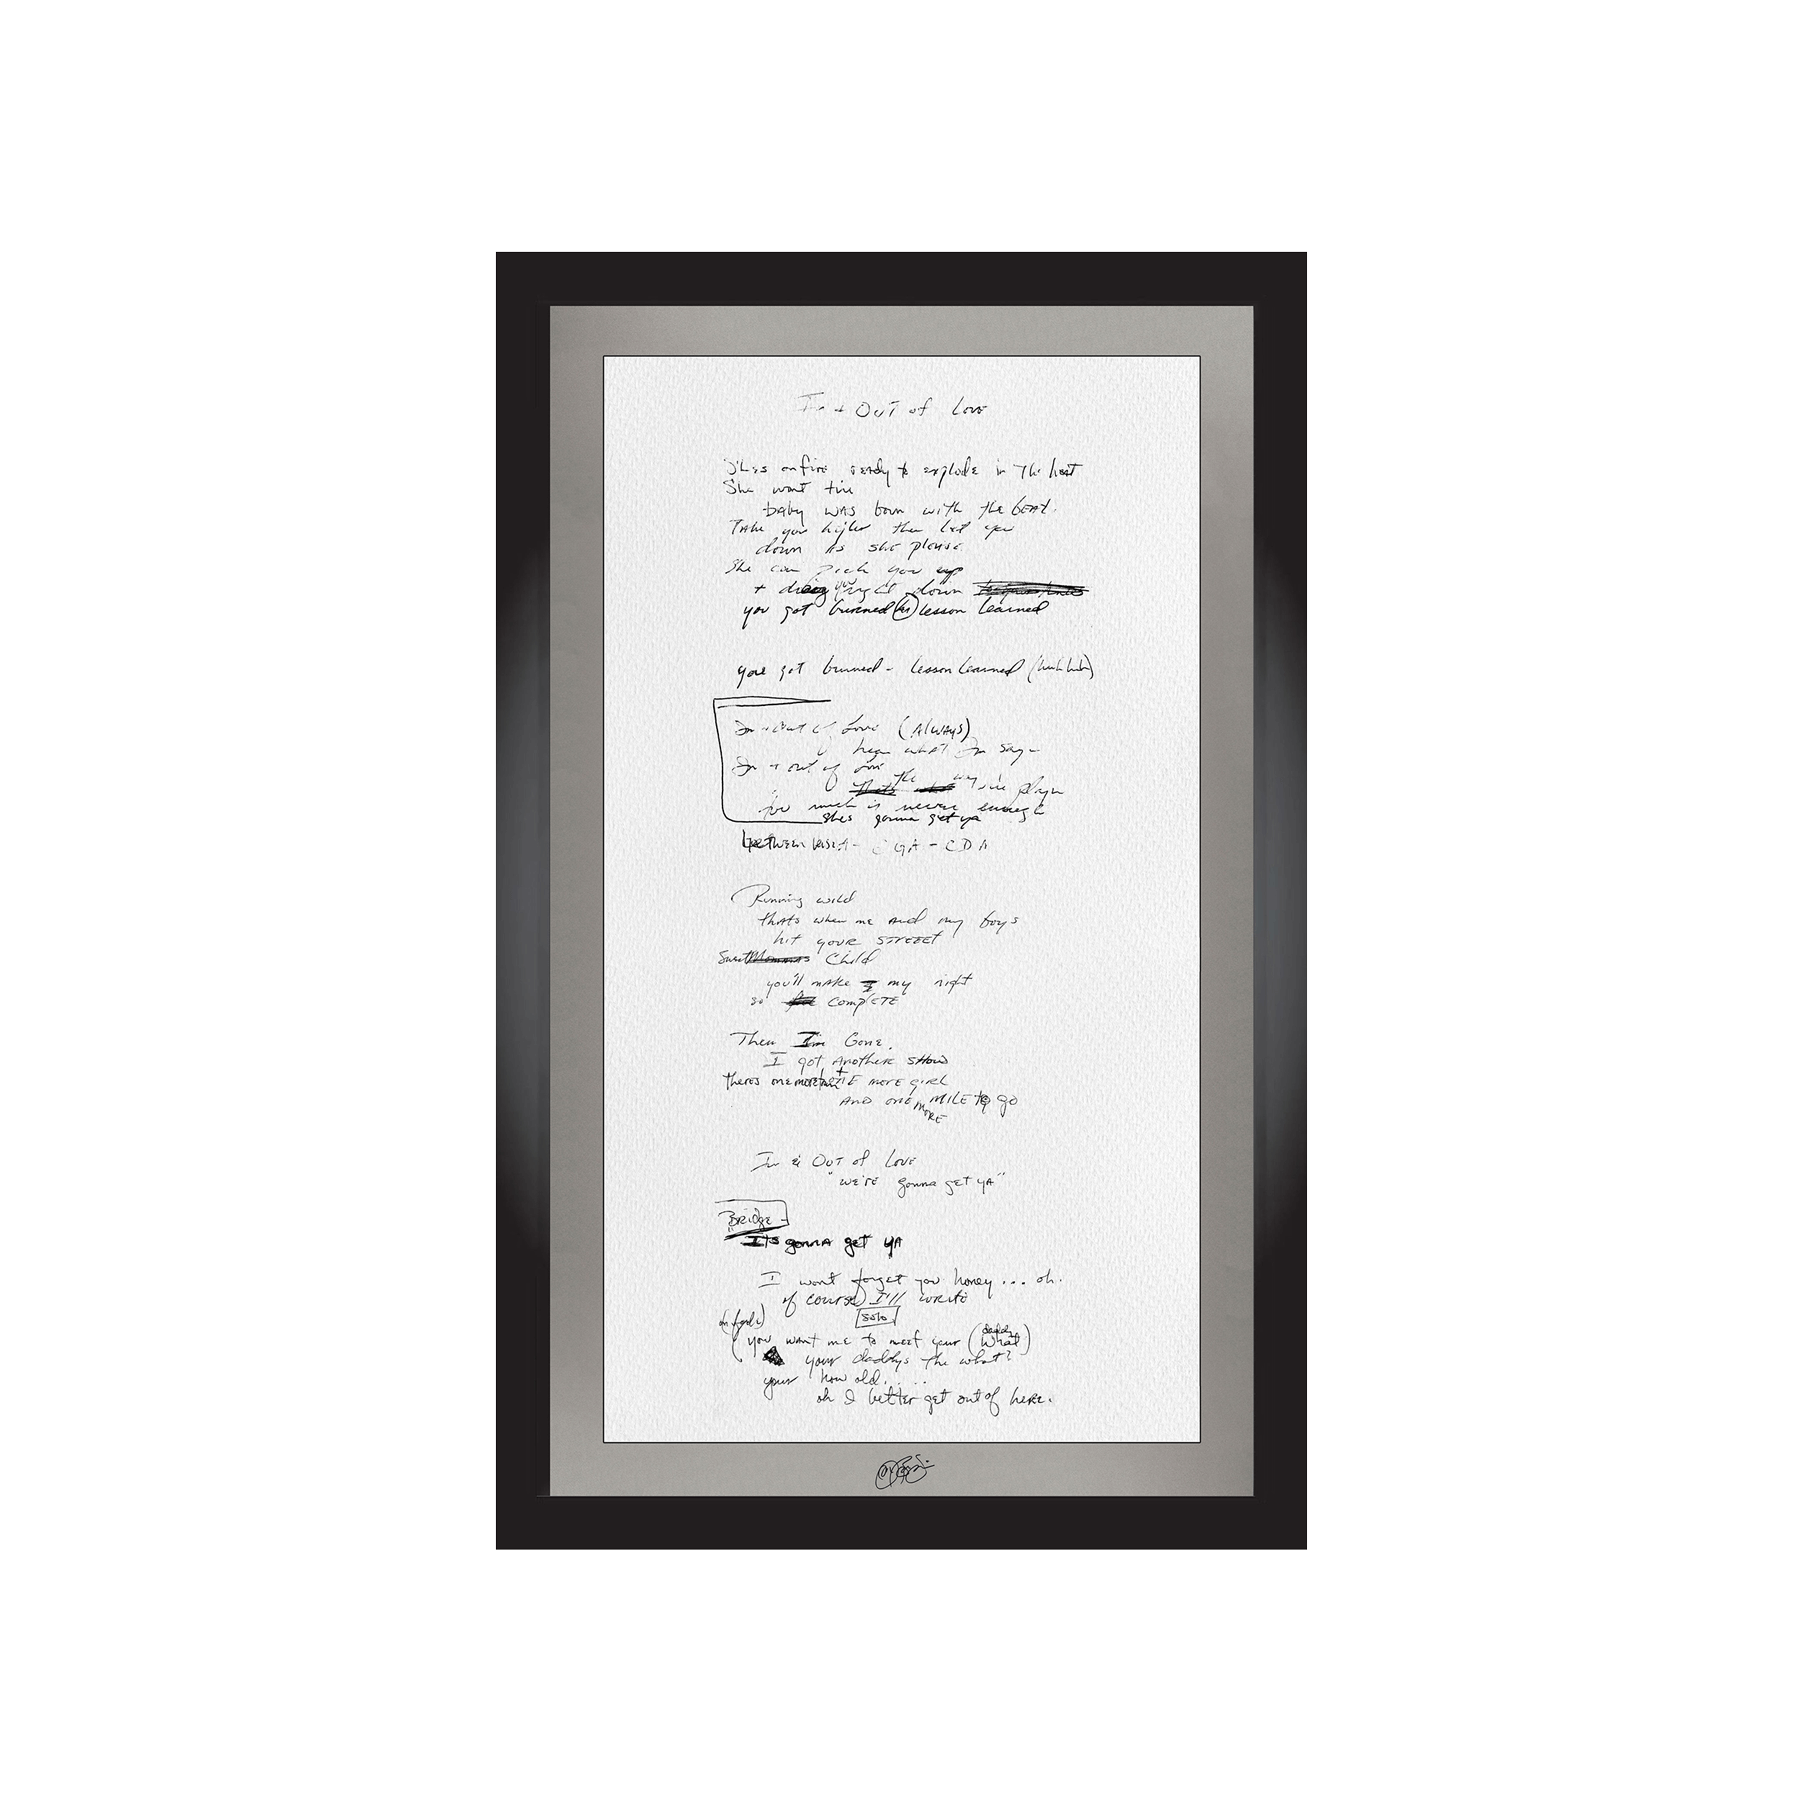 In + Out of Love
She's on fire ready to explode in the heat
She wont tire
baby was born with the beat.
Take you higher then let you
down as she please
She can pick you up
+ drag you right down
you got burned lesson learned
youre got burned - lesson learned (huh huh)
In + Out of Love (Always)
hear what Im say-
In + out of Love
the way Im playn
too much is never enough
shes gonna get ya
between verse A - CGA - CDA
Running wild
thats when me and my boys
hit your street
Sweet Child
you'll make my night
so complete
Then Im Gone.
I got another show
theres one more + one more girl
and one more mile to go
In & Out of Love
"we're gonna get ya"
Bridge -
Its gonna get ya
I wont forget you honey... oh.
of course I'll write
solo
you want me to meet your (daddy what)
your daddys the what?
your how old.....
oh I better get out of here.